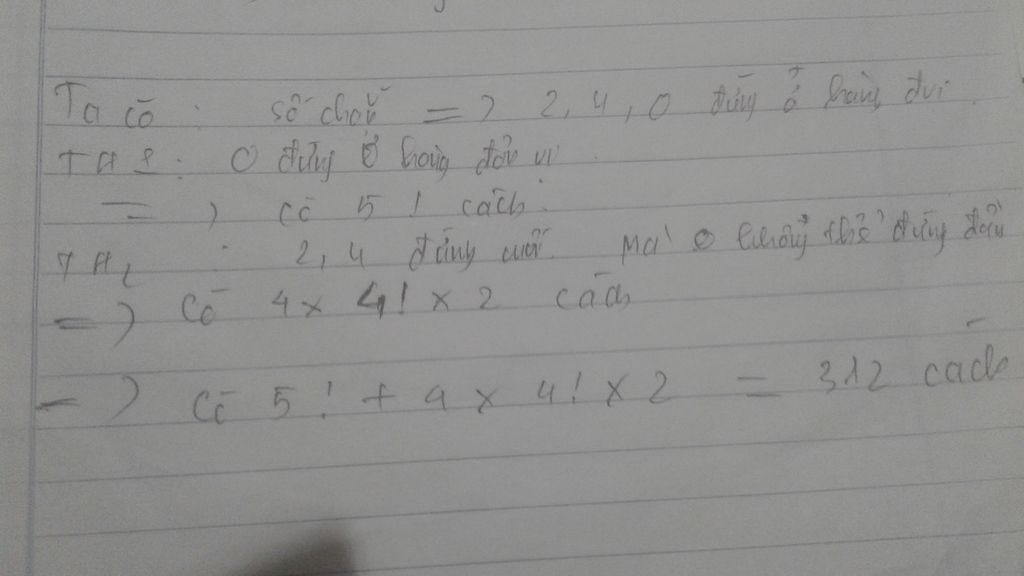 Ta có : số chẵn => 2, 4, 0 đứng ở hàng đvị
TH1 : 0 đứng ở hàng đơn vị
=> có 5! cách.
TH2 : 2, 4 đứng cuối. Mà 0 không thể đứng đầu
=> Có 4 x 4! x 2 cách
=> Có 5! + 4 x 4! x 2 = 312 cách